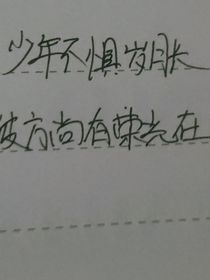 少年不惧岁月长
彼方尚有荣光在